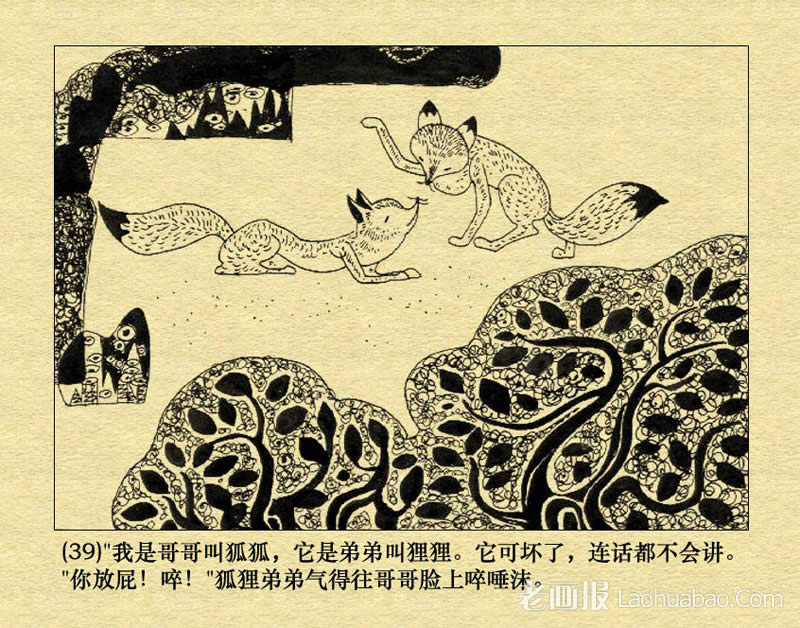 (39)"我是哥哥叫狐狐，它是弟弟叫狸狸。它可坏了，连话都不会讲。
"你放屁！啐！"狐狸弟弟气得往哥哥脸上啐唾沫。
老画报 Laohuabao.Com